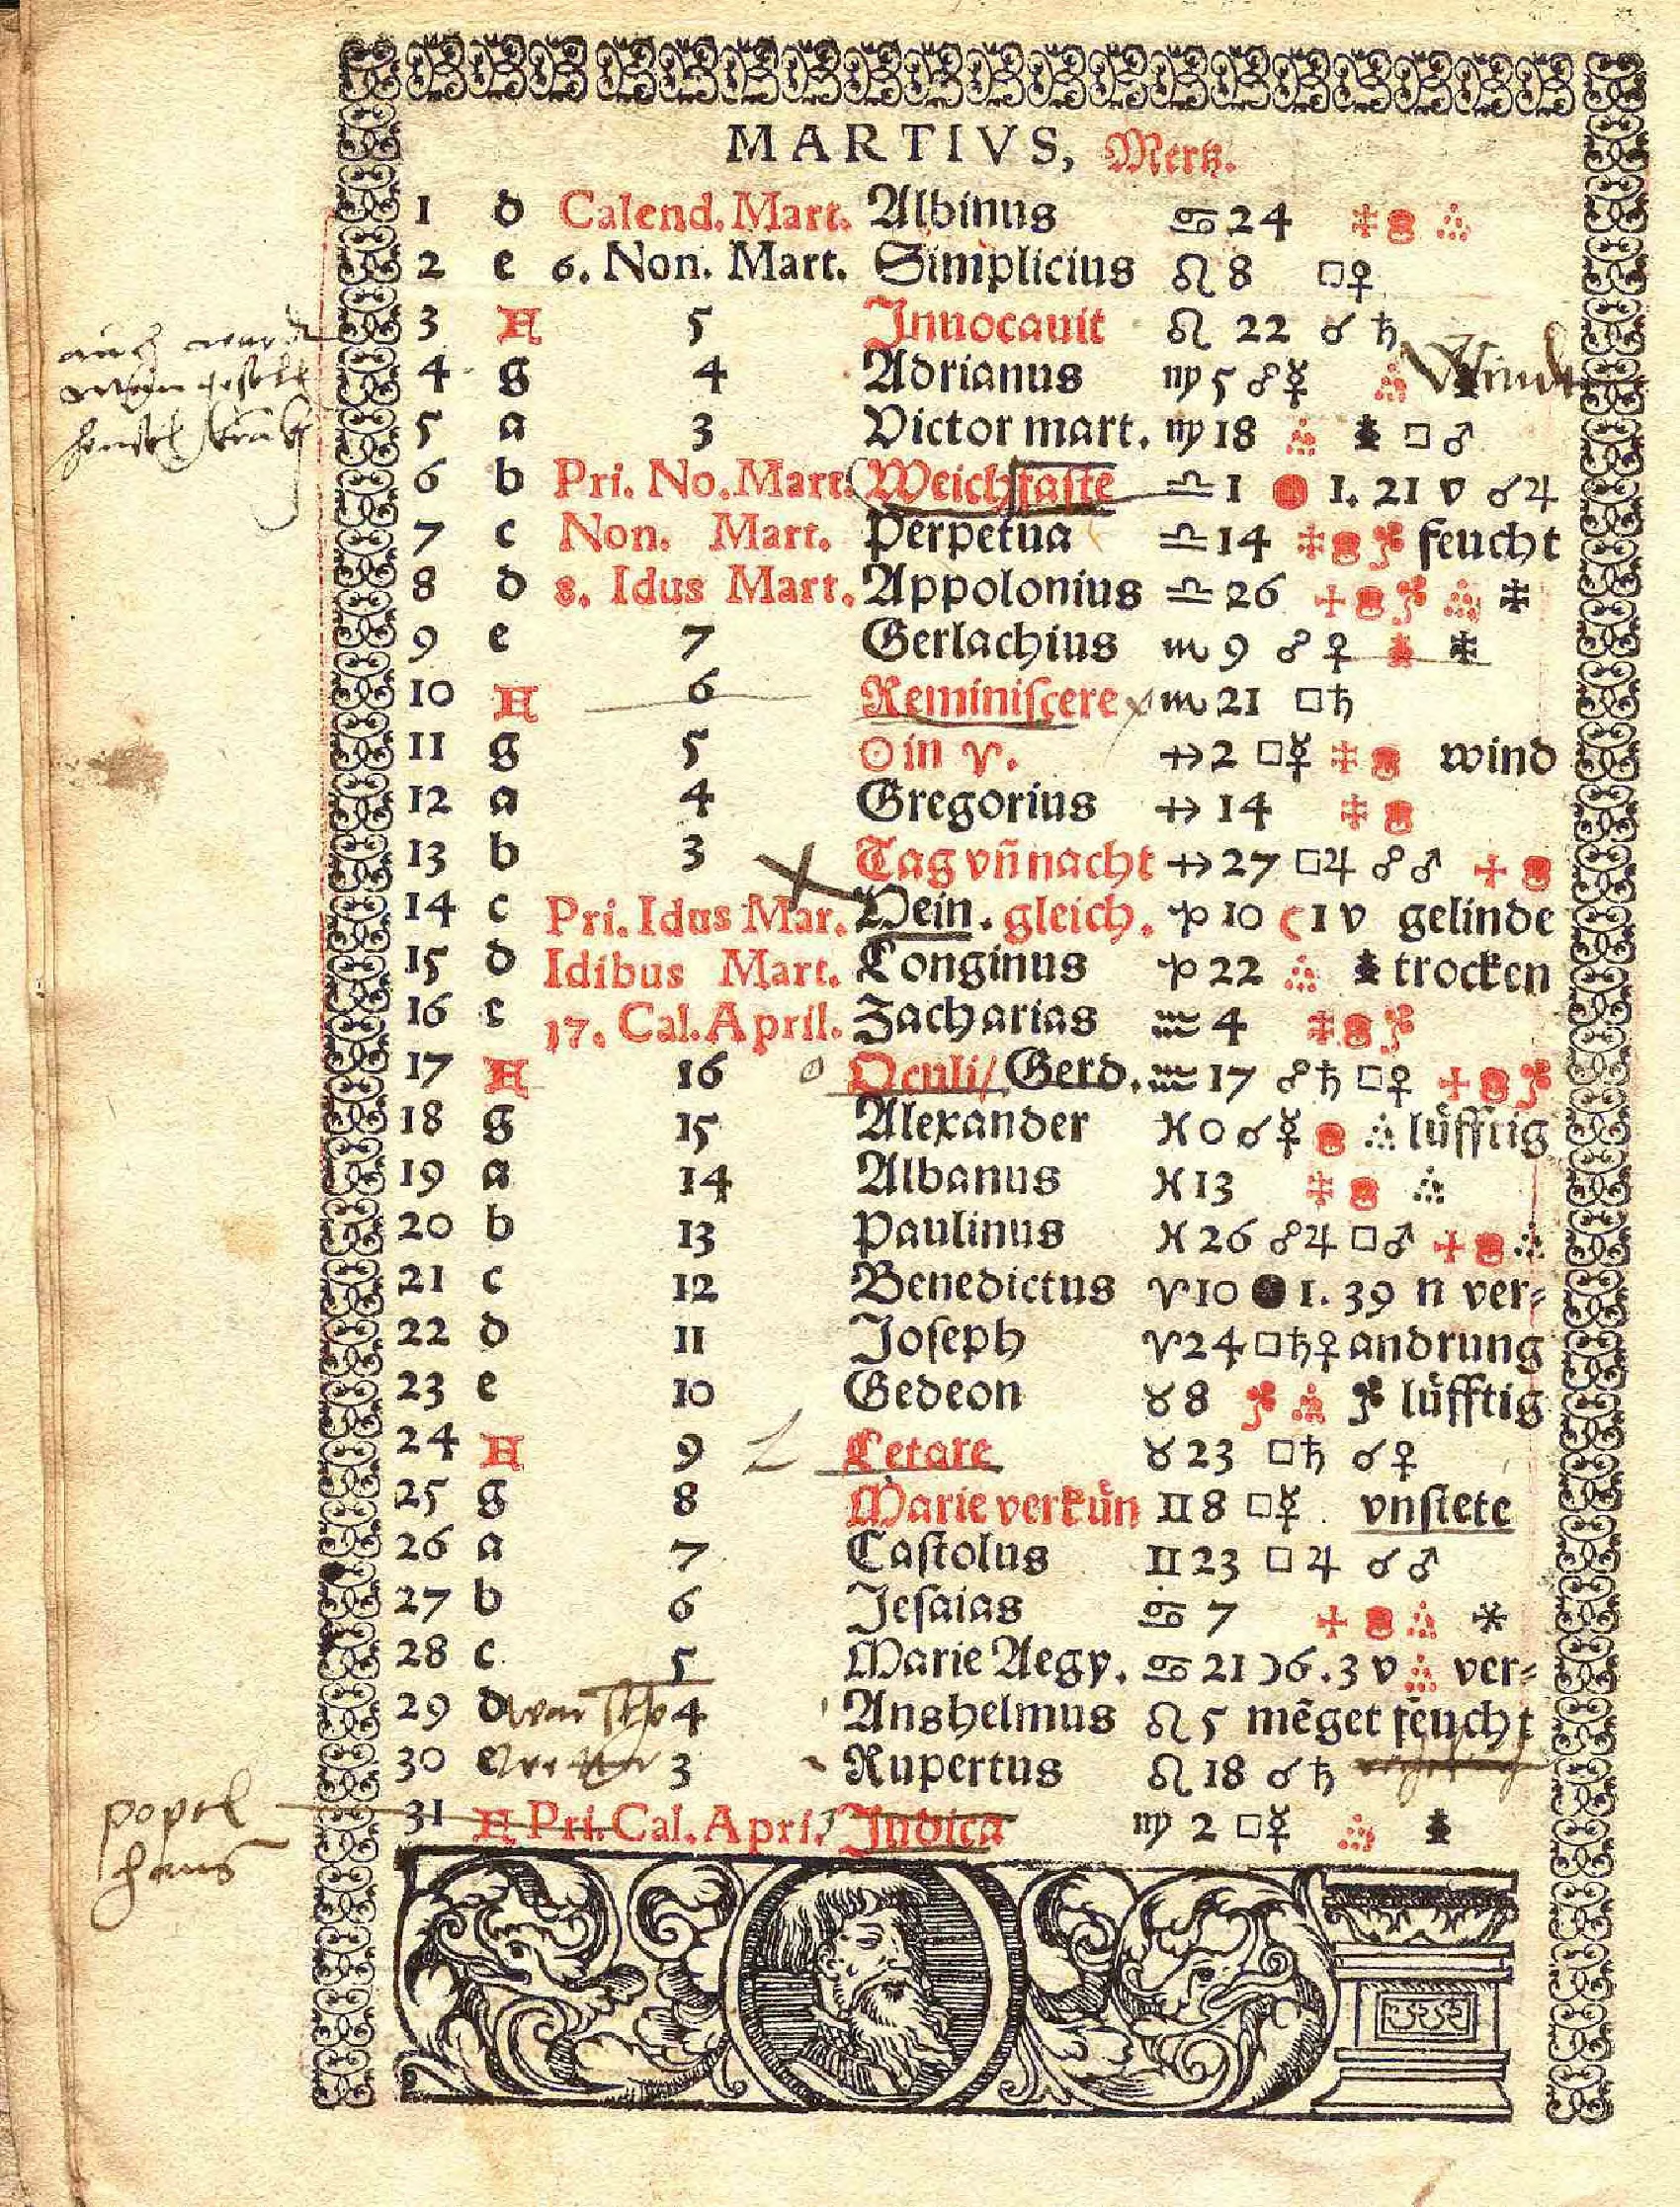 MARTIVS, Mertz.
1 d Calend. Mart. Albinus ♋ 24
2 e 6. Non. Mart. Simplicius ♌ 8 □♀
3 F 5 Innocauit ♌ 22 ☌ ♄
4 g 4 Adrianus ♍ 5 ☍☿ Windt
5 a 3 Victor mart. ♍ 18 □♂
6 b Pri. No. Mart. Weichfaste ♎ 1 1. 21 v ☌♃
7 c Non. Mart. Perpetua ♎ 14 feucht
8 d 8. Idus Mart. Appolonius ♎ 26
9 e 7 Gerlachius ♏ 9 ☍ ♀
10 F 6 Reminiscere ♏ 21 □♄
11 g 5 ☉ in ♈. ♐ 2 □☿ wind
12 a 4 Gregorius ♐ 14
13 b 3 Tag vñ nacht ♐ 27 □♃ ☍♂
14 c Pri. Idus Mar. Vein. gleich. ♑ 10 ☾ 1 v gelinde
15 d Idibus Mart. Longinus ♑ 22 trocken
16 e 17. Cal. April. Zacharias ♒ 4
17 F 16 Oculi/ Gerd. ♒ 17 ☍♄ □♀
18 g 15 Alexander ♓ 0 ☌☿ lüfftig
19 a 14 Albanus ♓ 13
20 b 13 Paulinus ♓ 26 ☍♃ □♂
21 c 12 Benedictus ♈ 10 ● 1. 39 n ver=
22 d 11 Joseph ♈ 24 □♄♀ andrung
23 e 10 Gedeon ♉ 8 lüfftig
24 F 9 Letare ♉ 23 □♄ ☌♀
25 g 8 Marie verkün ♊ 8 □☿ vnstete
26 a 7 Castolus ♊ 23 □♃ ☌♂
27 b 6 Jesaias ♋ 7
28 c 5 Marie Aegy. ♋ 21 ☽ 6. 3 v ver=
29 d war 4 Anshelmus ♌ 5 mēget feucht
30 e 3 Rupertus ♌ 18 ☌ ♄
31 F Pri. Cal. Apri. Judica ♍ 2 □☿
popel
haus